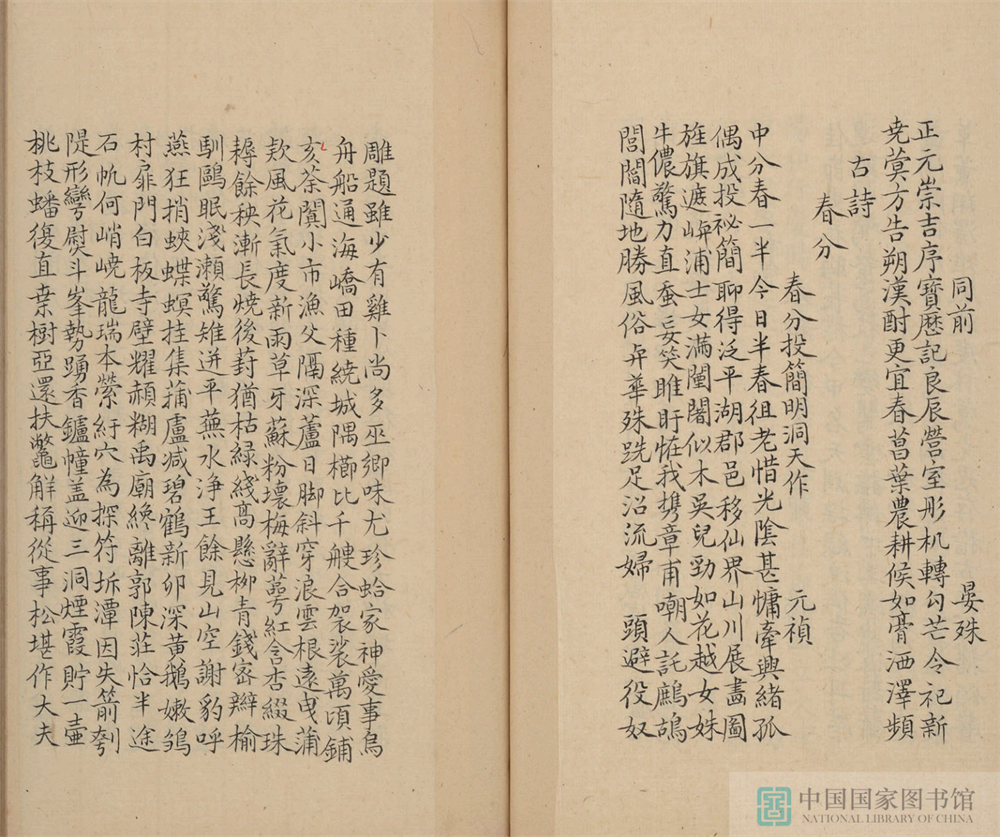 同前　晏殊
正元崇吉序寶歷記良辰營室彤杓轉勾芒令祀新
堯蓂方告朔漢酎更宜春菖葉農耕候如膏洒澤頻
古詩
春分
春分投簡明洞天作　元稹
中分春一半今日半春徂老惜光陰甚慵牽興緒孤
偶成投祕簡聊得泛平湖郡邑移仙界山川展畫圖
旌旗遮嶼浦士女滿闉闍似木吳兒勁如花越女姝
牛儂驚力直蚕妾笑睢盱恠我攜章甫嘲人託鷓鴣
閭閻隨地勝風俗與華殊跣足沿流婦　頭避役奴
雕題雖少有雞卜尚多巫鄉味尤珍蛤家神愛事烏
舟船通海嶠田種繞城隅櫛比千艘合袈裟萬頃鋪
亥茶闐小市漁父隔深蘆日脚斜穿浪雲根遠曳蒲
欵風花氣度新雨草牙蘇粉壞梅辭萼紅含杏綴珠
耨餘秧漸長燒後葑猶枯綠綫高懸柳青錢宻辮榆
馴鷗眠淺瀨驚雉迸平蕪水浄王餘見山空謝豹呼
燕狂捎蛺蝶螟挂集蒲盧减碧鶴新卵深黄鵝嫩鶵
村扉門白板寺壁耀赬糊禹廟纔離郭陳莊恰半途
石帆何峭嶢龍瑞本縈紆穴為探符坼潭因失箭刳
隄形彎熨斗峯勢踴香鑪幢盖迎三洞煙霞貯一壷
桃枝蟠復直桒樹亞還扶鼈解稱從事松堪作大夫
中国国家图书馆
NATIONAL LIBRARY OF CHINA